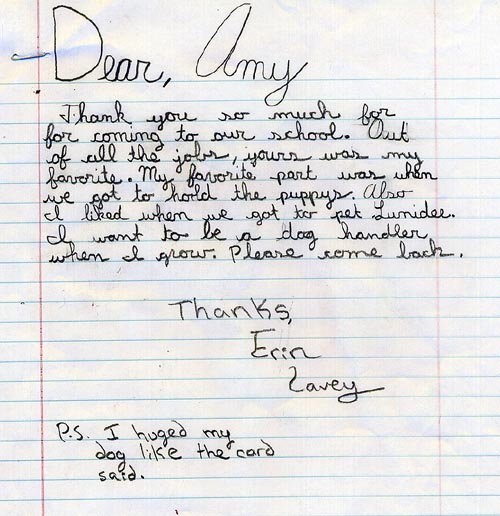 Dear, Amy
Thank you so much for
for coming to our school. Out
of all the jobs, yours was my
favorite. My favorite part was when
we got to hold the puppys. Also
I liked when we got to pet Lunidee.
I want to be a dog handler
when I grow. Please come back.
Thanks,
Erin
Lavey
P.S. I huged my
dog like the card
said.